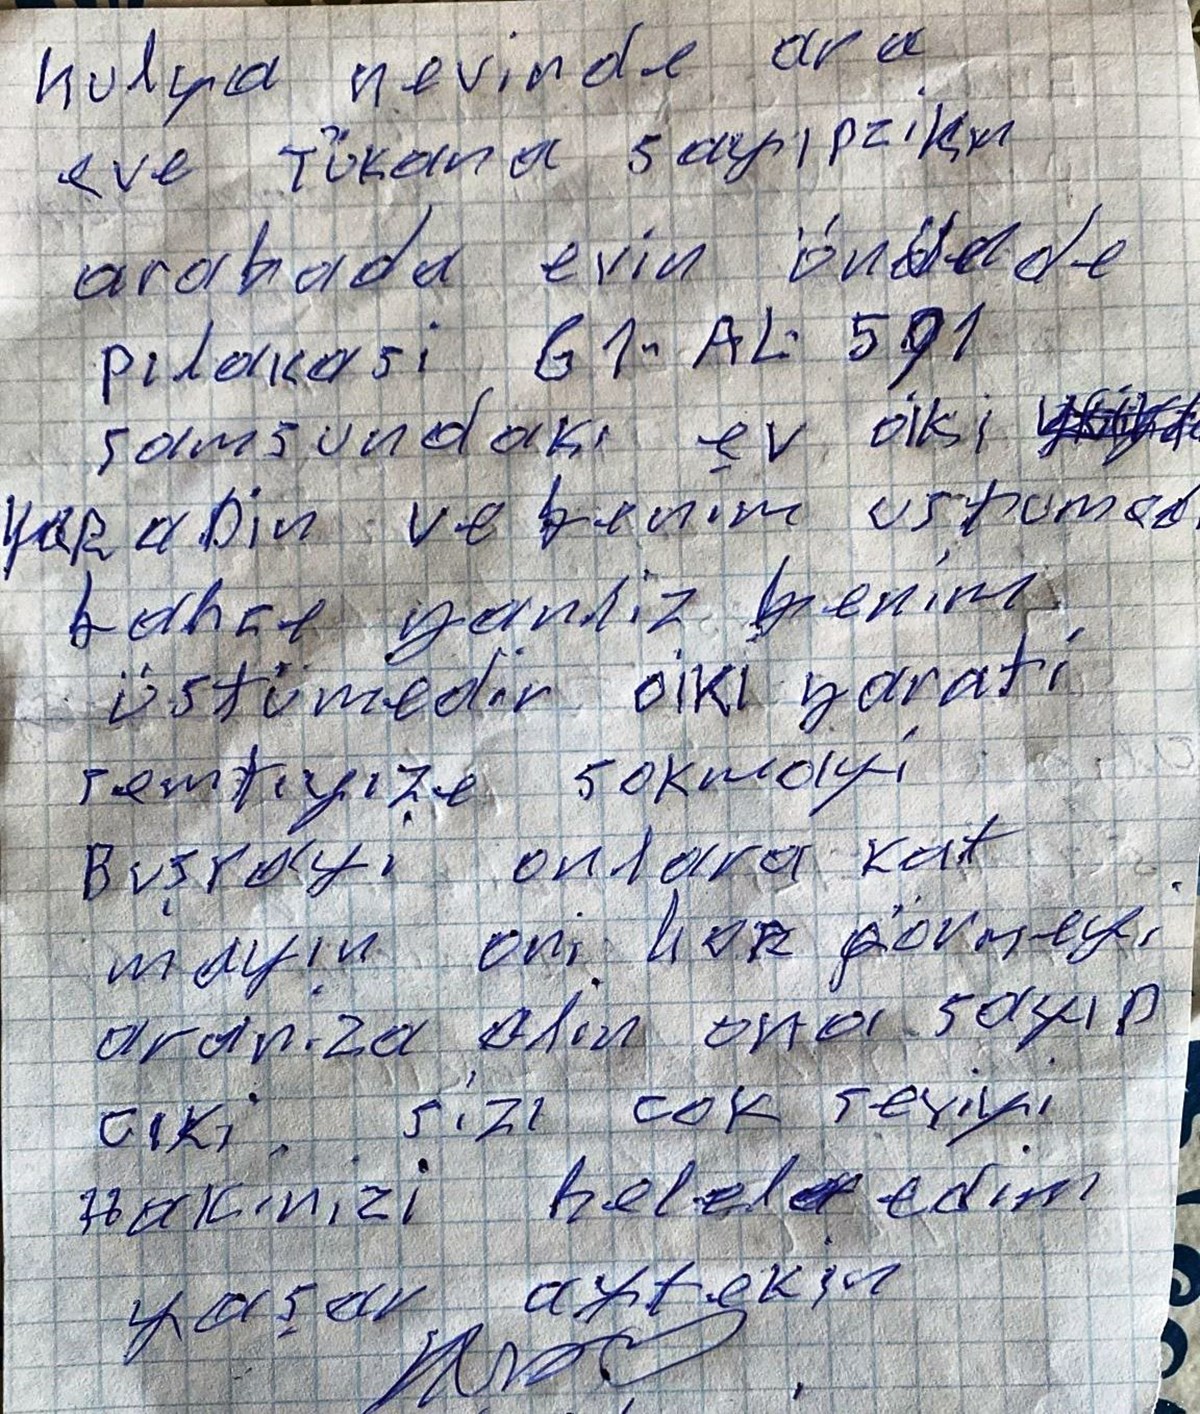 hulya nevinde ara
eve Tükana sayıpzikın
arabada evin önünde
pilakasi 61. AL. 591
samsundakı ev oiki
yapadin ve benim ustumed
bahce yanliz benim
üstümedir oiki yarati
semtiyize sokmayi
Buşrayi onlara kat
mayın oni hor görmeyi
araniza alin ona sayıp
cıki. sizi cok seviyi
Hakinizi helel edim
yaşar aytekin